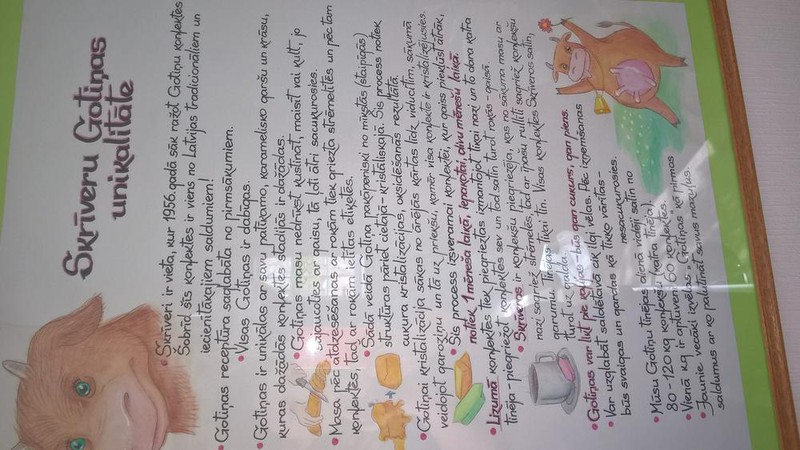 Skrīveru Gotiņas
unikalitāte
• Skrīveri ir vieta, kur 1956.gadā sāk ražot Gotiņu konfektes
Šobrīd šīs konfektes ir viens no Latvijas tradicionāliem un
iecienītākajiem saldumiem!
• Gotiņas receptūra saglabāta no pirmsākumiem.
• Visas Gotiņas ir dabīgas.
• Gotiņas ir unikālas ar savu patīkamo, karamelisko garšu un krāsu,
kuras dažādās konfektes stadijās ir dažādas.
• Gotiņas masu nedrīkst kustināt, maisīt vai kult, jo
sajaucoties ar gaisu, tā ļoti ātri sacukurosies.
• Masa pēc atdzesēšanas ar rokām tiek griezta strēmelītēs un pēc tam
konfektēs, tad ar rokām ietītas etiķetēs.
• Šādā veidā Gotiņa pakāpeniski no mīkstās (staipīgās)
struktūras pāriet cietajā - kristāliskajā. Šis process notiek
cukura kristalizācijas, oksidēšanas rezultātā.
• Gotiņai kristalizācija sākas no ārējās kārtas līdz viducītim, sākumā
veidojot garoziņu un tā uz priekšu, kamēr visa konfekte ir kristalizējusies.
• Šis process izsveramai konfektei, kur gaiss piekļūst ātrāk,
notiek 1 mēneša laikā, iepakotai, divu mēnešu laikā.
• Līzumā konfektes tiek piegrieztas izmantojot tikai nazi un to dara katra
tinēja - piegriežot konfektes sev un tad satin turot rokās - gaisā.
• Skrīveros ir konfekšu piegriezēja, kas no sākuma masu ar
nazi sagriež strēmelēs, tad ar īpašu rullīti sagriež konfekšu
garumu. Tinējas tikai tin. Visas konfektes Skrīveros satin,
turot uz galda.
• Gotiņas var likt pie kafijas - būs gan cukurs, gan piens.
• Var uzglabāt saldētavā uz ilgi vēlas. Pēc izņemšanas
būs svaigas un gardas kā tikko vārītas -
nesacukurosies.
• Mūsu Gotiņu tinējas dienā vidēji satin no
80 - 120 kg konfekšu (katra tinēja).
• Vienā kg ir aptuveni 60 konfektes.
• Jaunie vecāki izvēlas "Gotiņas" kā pirmos
saldumus ar ko palutināt savus mazuļus.